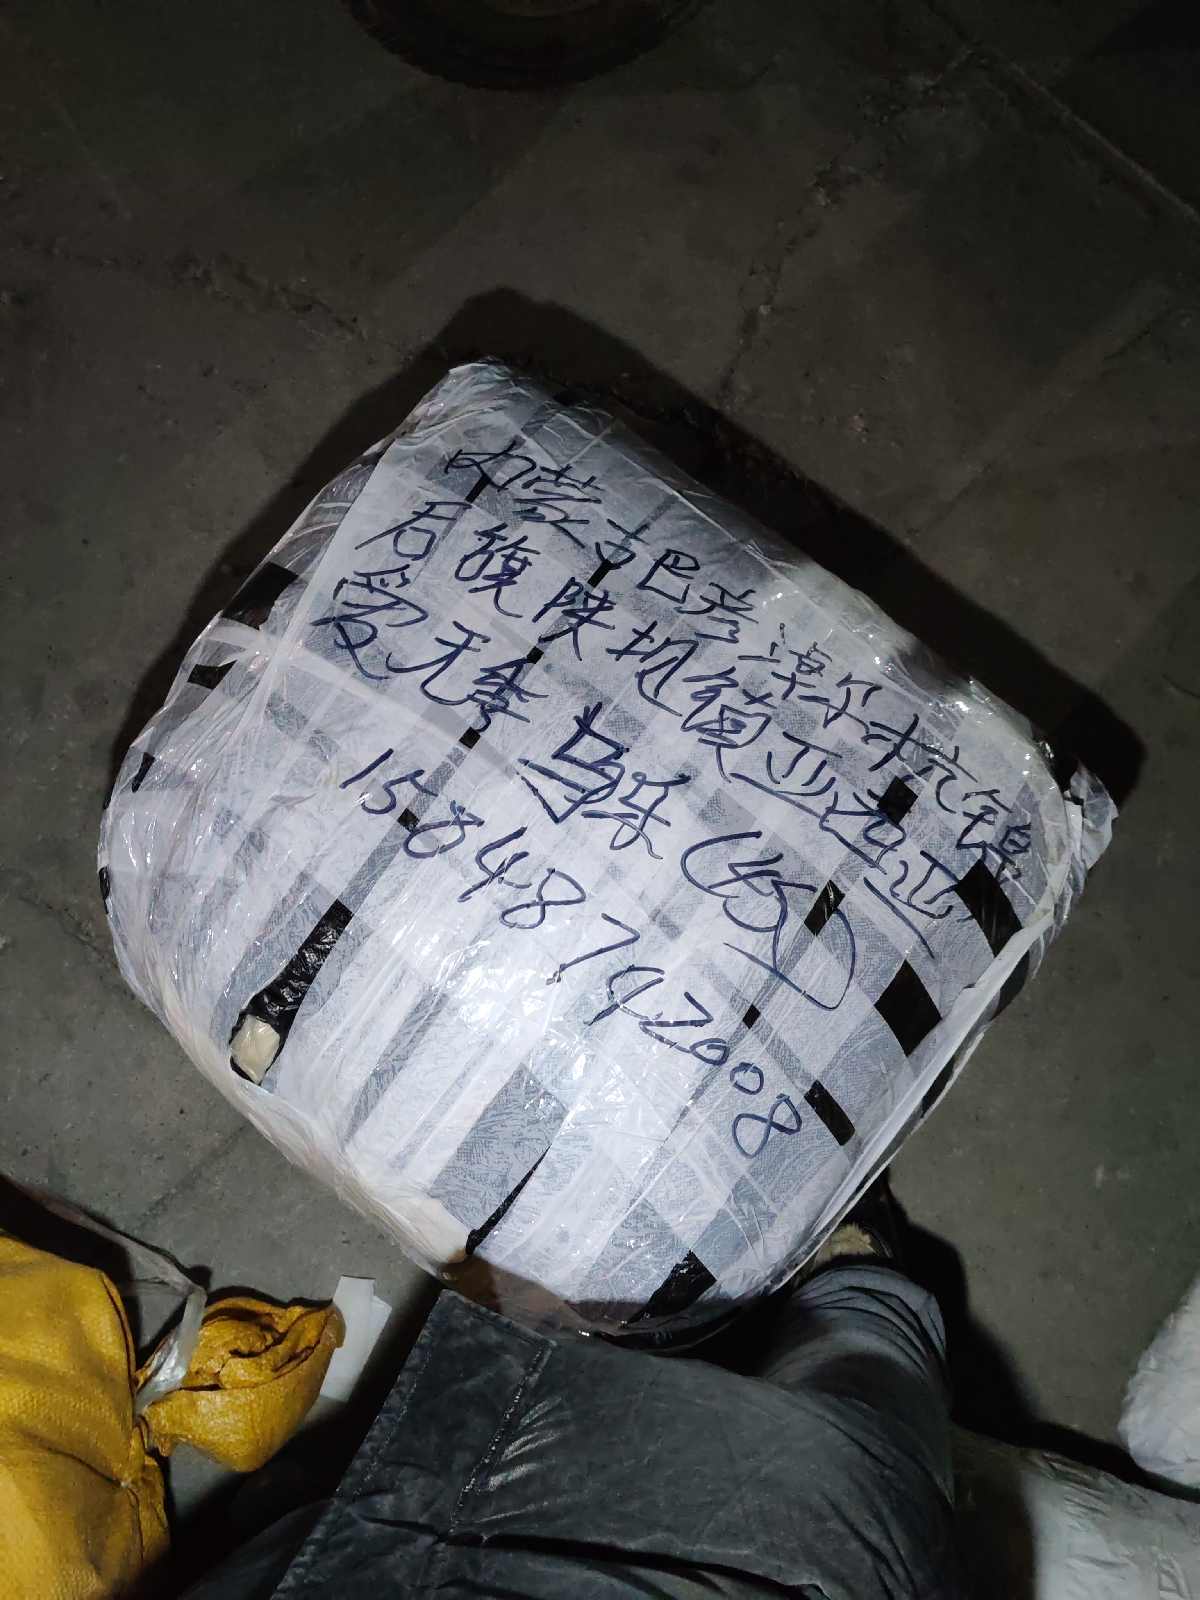 内蒙古巴彦淖尔杭锦
后旗陕坝镇亚运亚
爱无季 马乐 (45)
15848742008